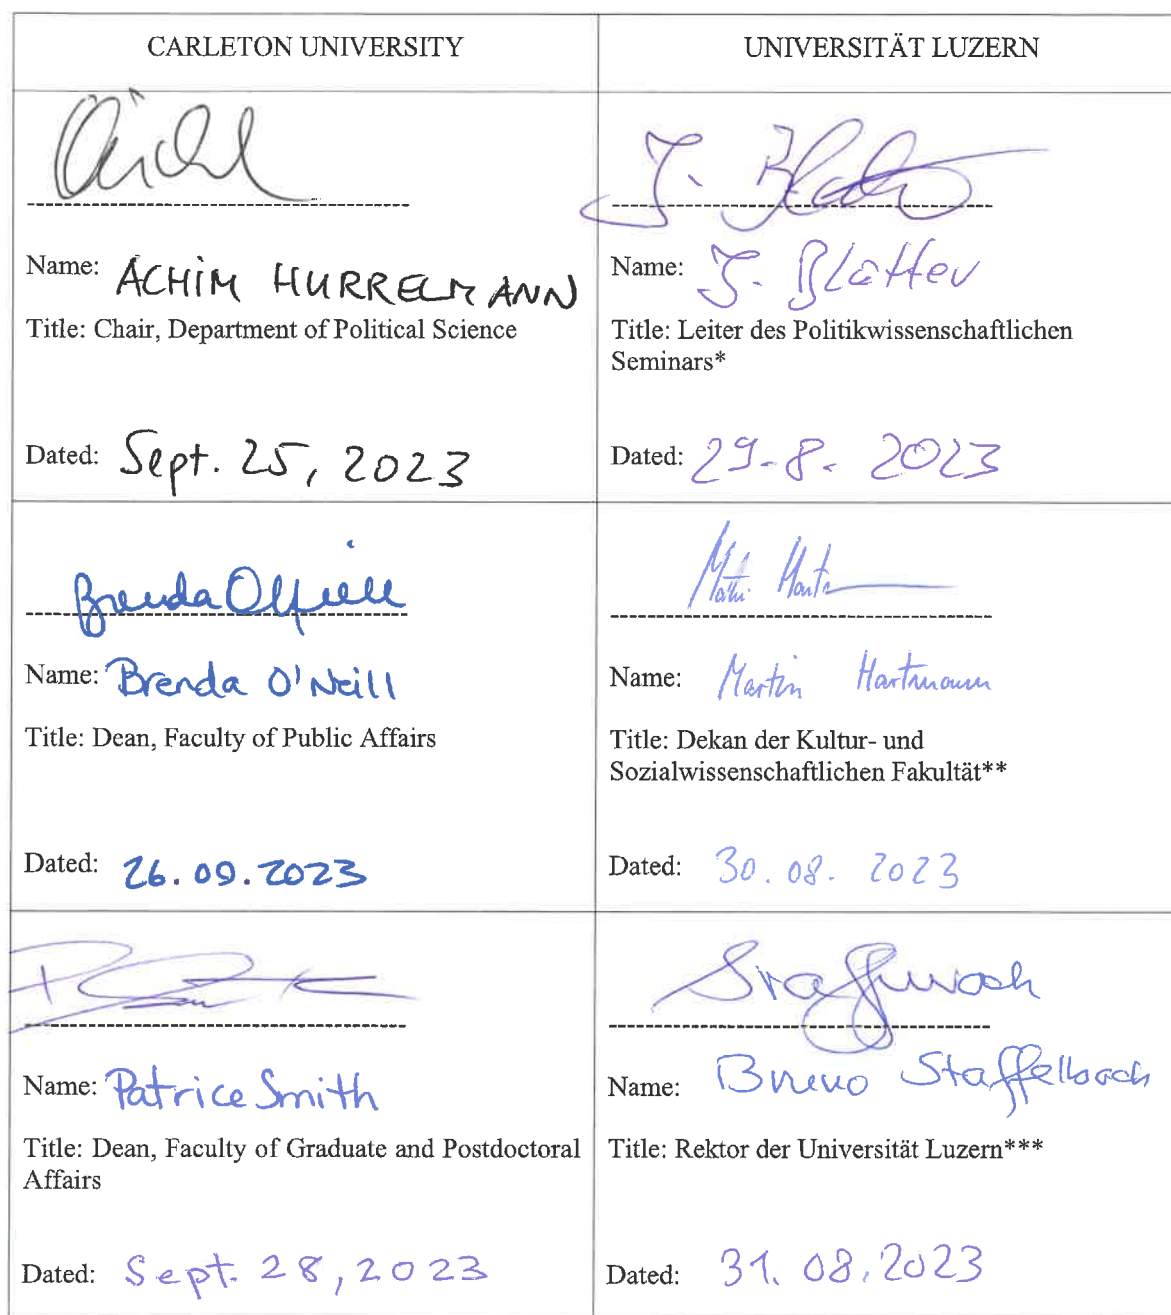 CARLETON UNIVERSITY
UNIVERSITÄT LUZERN
Name: ACHIM HURRELMANN
Title: Chair, Department of Political Science
Dated: Sept. 25, 2023
J. Blatter
Name: J. Blatter
Title: Leiter des Politikwissenschaftlichen
Seminars*
Dated: 29.8. 2023
Brenda O'Neill
Name: Brenda O'Neill
Title: Dean, Faculty of Public Affairs
Dated: 26.09.2023
Name: Martin Hartmann
Title: Dekan der Kultur- und
Sozialwissenschaftlichen Fakultät**
Dated: 30.08. 2023
Name: Patrice Smith
Title: Dean, Faculty of Graduate and Postdoctoral
Affairs
Dated: Sept. 28, 2023
Name: Bruno Staffelbach
Title: Rektor der Universität Luzern***
Dated: 31.08.2023